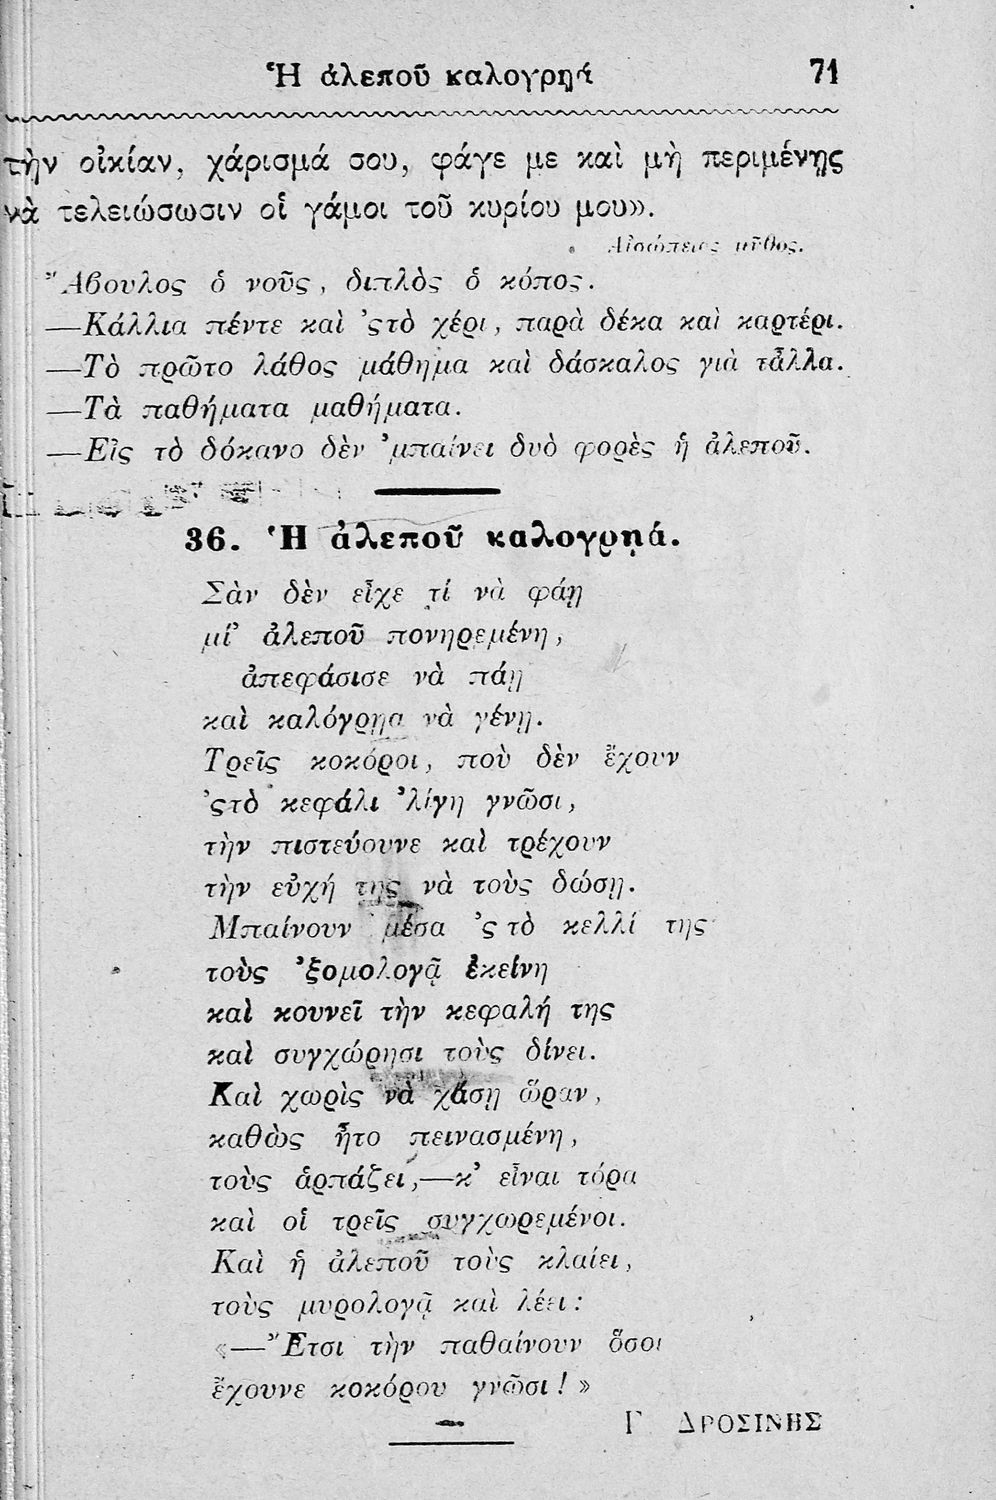 Ἡ ἀλεποῦ καλογρῃά 71
τὴν οἰκίαν, χάρισμά σου, φάγε με καὶ μὴ περιμένῃς
νὰ τελειώσωσιν οἱ γάμοι τοῦ κυρίου μου».
Αἰσώπειος μῦθος.
Ἄβουλος ὁ νοῦς, διπλὸς ὁ κόπος.
—Κάλλια πέντε καὶ 'ςτὸ χέρι, παρὰ δέκα καὶ καρτέρι.
—Τὸ πρῶτο λάθος μάθημα καὶ δάσκαλος γιὰ τἆλλα.
—Τὰ παθήματα μαθήματα.
—Εἰς τὸ δόκανο δὲν 'μπαίνει δυὸ φορὲς ἡ ἀλεποῦ.
36. Ἡ ἀλεποῦ καλογρῃά.
Σὰν δὲν εἶχε τί νὰ φάῃ
μι' ἀλεποῦ πονηρεμένη,
ἀπεφάσισε νὰ πάῃ
καὶ καλόγρῃα νὰ γένῃ.
Τρεῖς κοκόροι, ποὺ δὲν ἔχουν
'ςτὸ κεφάλι 'λίγη γνῶσι,
τὴν πιστεύουνε καὶ τρέχουν
τὴν εὐχή της νὰ τοὺς δώσῃ.
Μπαίνουν μέσα 'ς τὸ κελλί της
τοὺς 'ξομολογᾷ ἐκείνη
καὶ κουνεῖ τὴν κεφαλή της
καὶ συγχώρησι τοὺς δίνει.
Καὶ χωρὶς νὰ χάσῃ ὥραν,
καθὼς ἦτο πεινασμένη,
τοὺς ἁρπάζει,—κ' εἶναι τόρα
καὶ οἱ τρεῖς συγχωρεμένοι.
Καὶ ἡ ἀλεποῦ τοὺς κλαίει,
τοὺς μυρολογᾷ καὶ λέει:
«—Ἔτσι τὴν παθαίνουν ὅσοι
ἔχουνε κοκόρου γνῶσι!»
Γ ΔΡΟΣΙΝΗΣ